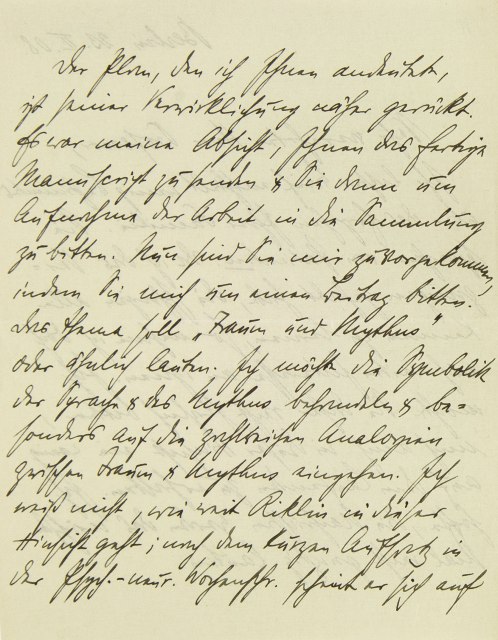 Der Plan, den ich Ihnen andeutete,
ist seiner Verwirklichung näher gerückt.
Es war meine Absicht, Ihnen das fertige
Manuscript zu senden & Sie dann um
Aufnahme der Arbeit in die Sammlung
zu bitten. Nun sind Sie mir zuvorgekommen,
indem Sie mich um einen Beitrag bitten.
Das Thema soll „Traum und Mythus“
oder ähnlich lauten. Ich möchte die Symbolik
der Sprache & des Mythus behandeln & be-
sonders auf die zahlreichen Analogien
zwischen Traum & Mythus eingehen. Ich
weiß nicht, wie weit Riklin in dieser
Hinsicht geht; nach dem kurzen Aufsatz in
der Psych.-neur. Wochenschr. scheint er sich auf